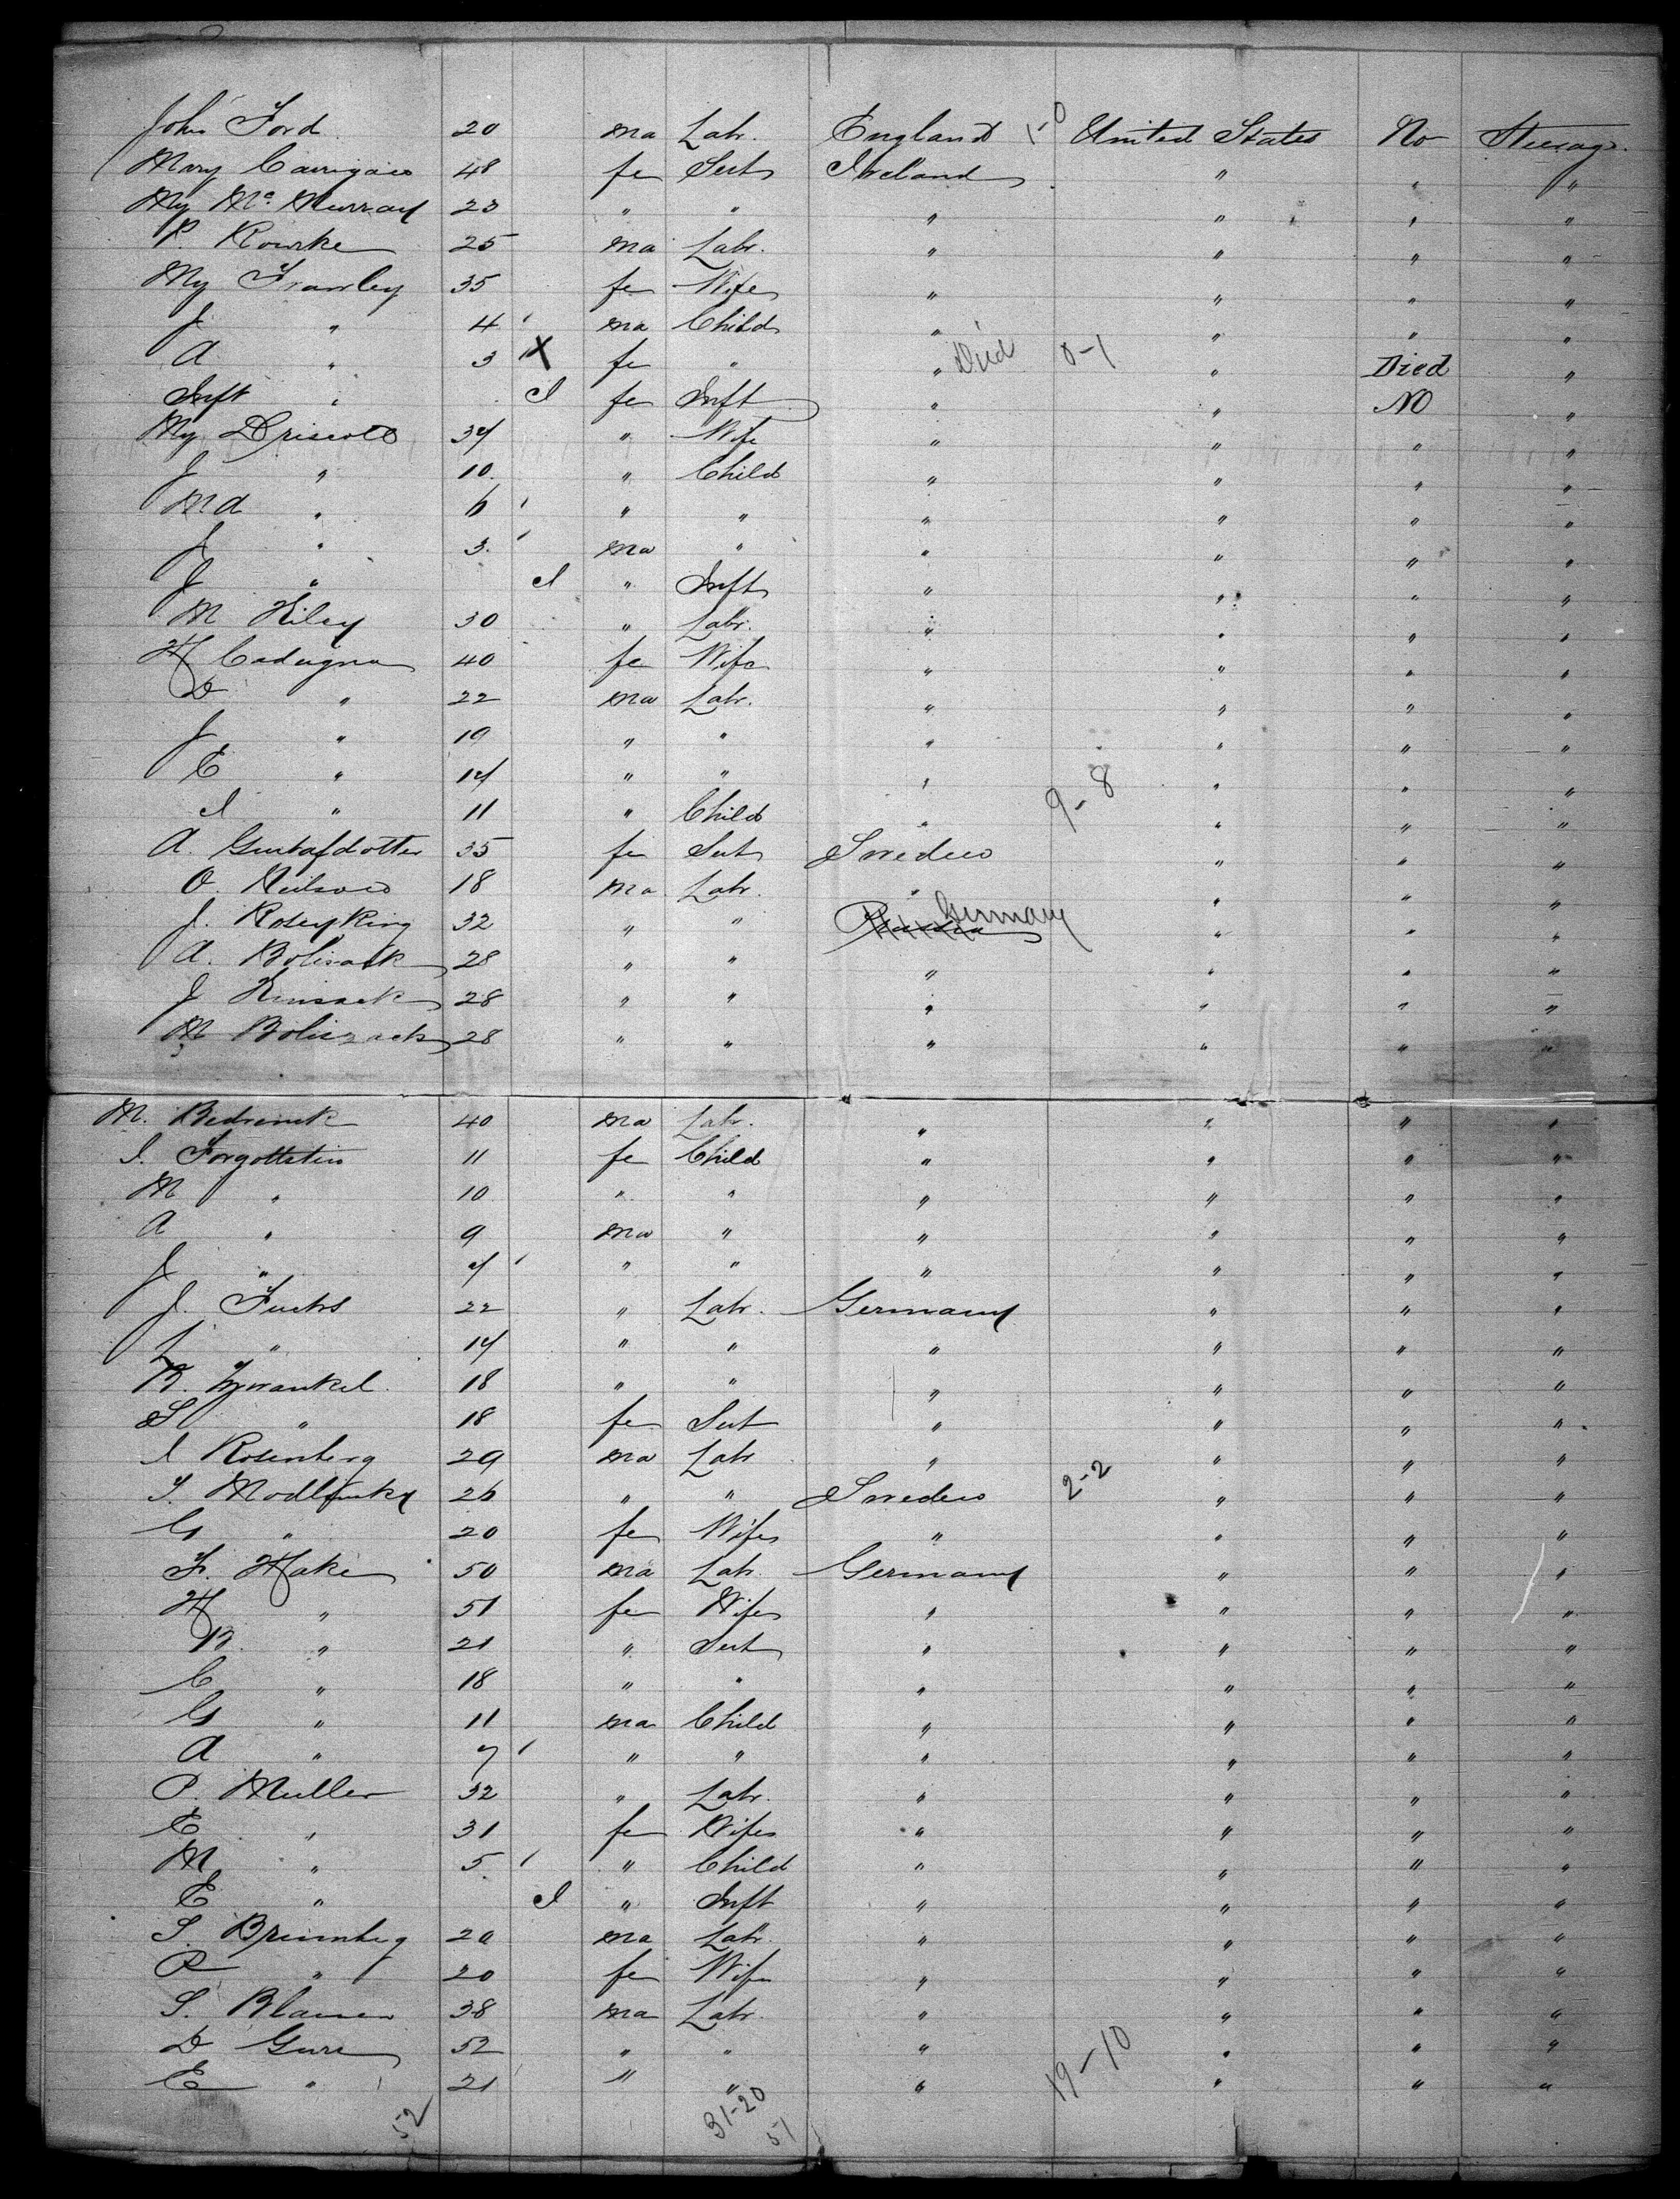 John Ford 20 ma Labr. England 1-0 United States No Steerage.
Mary 48 fe Sert Ireland " " "
My Mc Murray 23 " " " " " "
P. Rourke 25 ma Labr. " " " "
My Frawley 35 fe Wife " " " "
J " 4 ' ma Child " " " "
A " 3 ' X fe " " Died 0-1 " Died "
Inft " I fe Inft " " No "
My Driscoll 34 " Wife " " " "
J " 10. " Child " " " "
Ma " 6 ' " " " " " "
J " 3. ' ma " " " " "
J " I " Inft " " " "
M Riley 30 " Labr. " " " "
H Cadogan 40 fe Wife " " " "
D " 22 ma Labr. " " " "
J " 19 " " " " " "
C " 14 " " " " " "
I " 11 " Child " 9-8 " " "
A. Gustafdotter 35 fe Sert Sweden " " "
O. Neilson 18 ma Labr. " " " "
J. 32 " " Russia Germany " " "
A. 28 " " " " " "
J 28 " " " " " "
M 28 " " " " " "
M. 40 ma Labr. " " " "
I. Forgottstein 11 fe Child " " " "
M " 10 " " " " " "
A " 9 ma " " " " "
J " 7 ' " " " " " "
J. Fuchs 22 " Labr. Germany " " "
L " 14 " " " " " "
R. 18 " " " " " "
S " 18 fe Sert " " " "
I Rosenberg 29 ma Labr " " " "
26 " " Sweden 2-2 " " "
G " 20 fe Wife " " " "
F. Hake 50 ma Labr. Germany " " "
H " 51 fe Wife " " " "
B. " 21 " Sert " " " "
C " 18 " " " " " "
G " 11 ma Child " " " "
A " 7 ' " " " " " "
P. Muller 32 " Labr. " " " "
E " 31 fe Wife " " " "
M " 5 ' " Child " " " "
E " I " Inft " " " "
S. 20 ma Labr. " " " "
R " 20 fe Wife " " " "
S. 38 ma Labr. " " " "
D 52 " " " " " "
E " 21 " " " 19-10 " " "
52 31-20
51